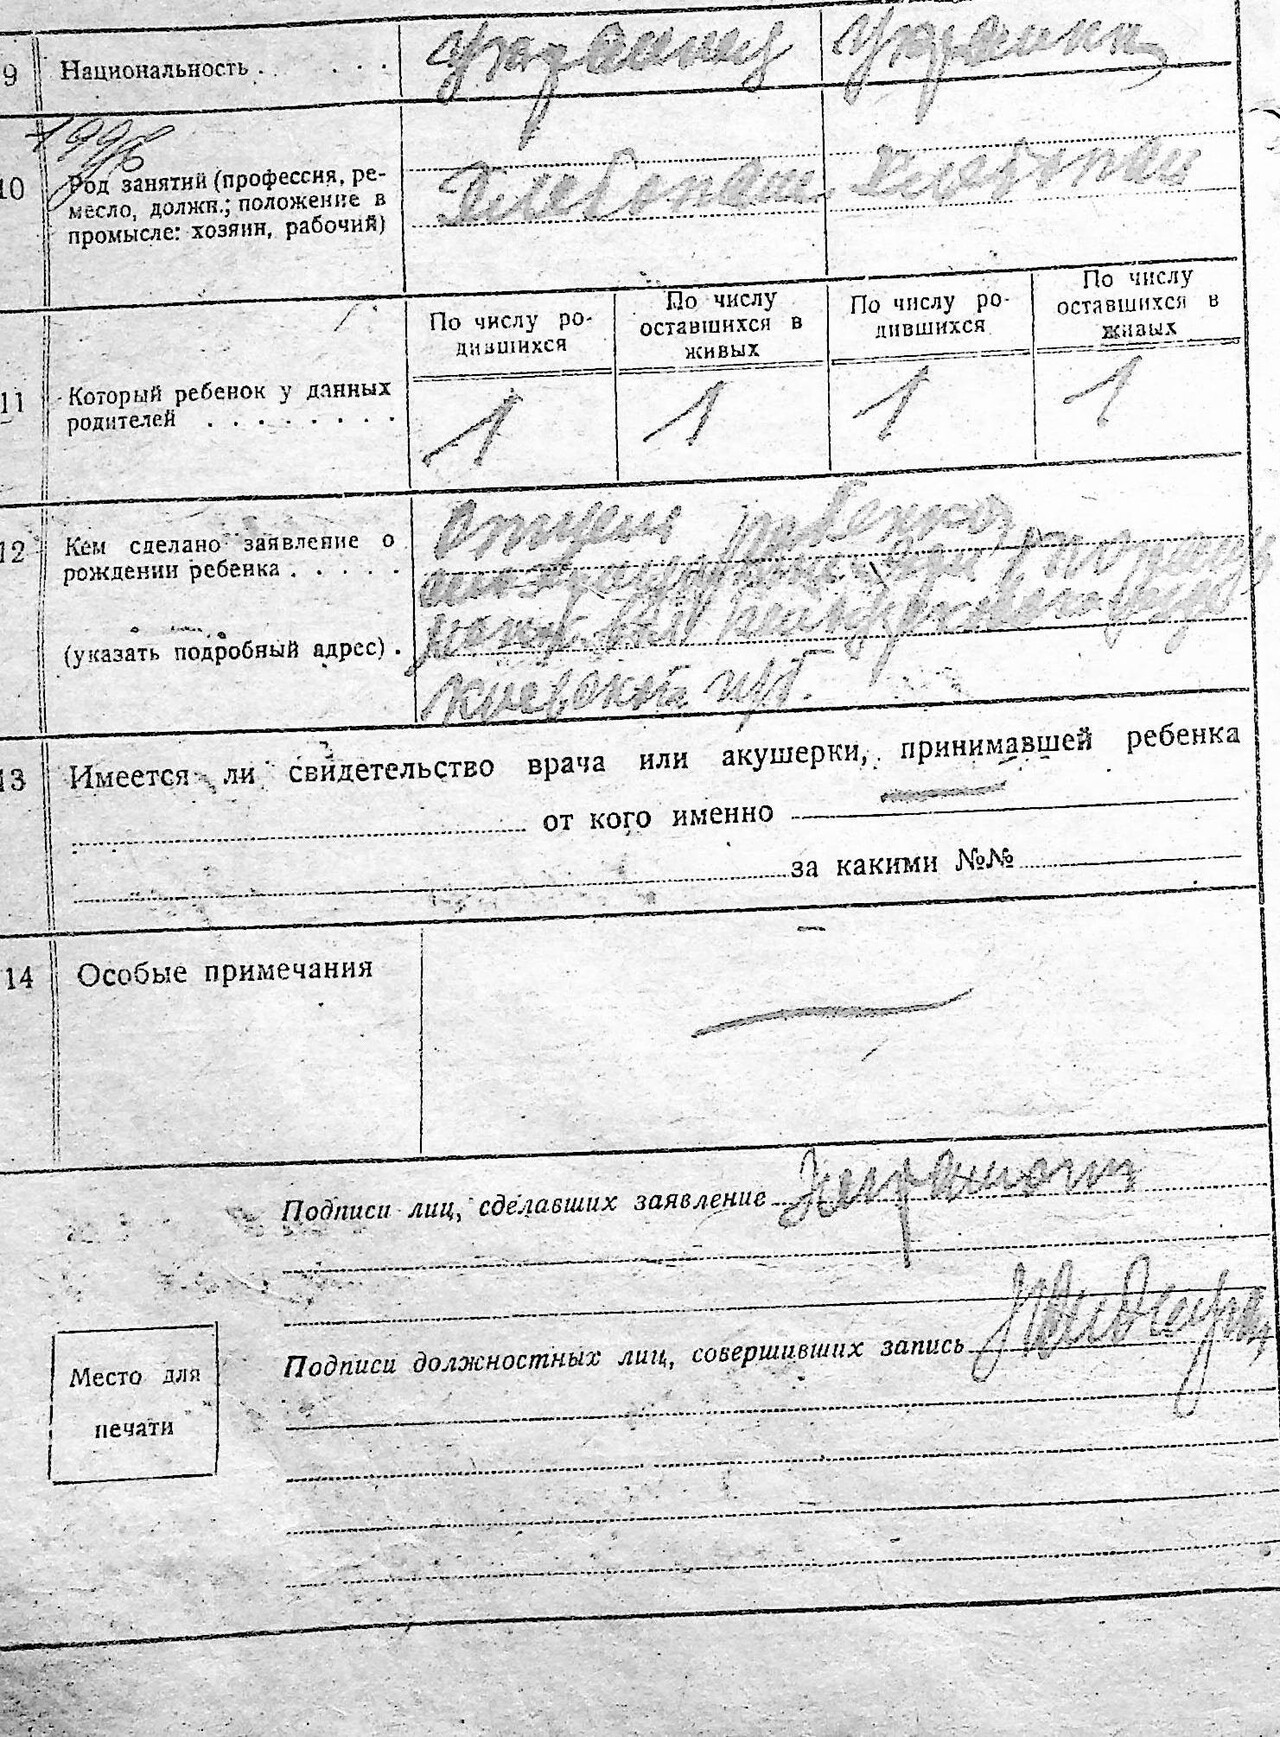 9 Национальность . . . . . украинец украинк
1996
10 Род занятий (профессия, ре-
месло, должн.; положение в
промысле: хозяин, рабочий)
Хлебопаш. Хлебопаш
По числу ро-
дившихся
По числу
оставшихся в
живых
По числу ро-
дившихся
По числу
оставшихся в
живых
11 Который ребенок у данных
родителей . . . . . . . .
1 1 1 1
12 Кем сделано заявление о
рождении ребенка . . . . .
(указать подробный адрес) .
отцем ребенка
киевской
13 Имеется ли свидетельство врача или акушерки, принимавшей ребенка
от кого именно
за какими №№
14 Особые примечания
Подписи лиц, сделавших заявление неграмотн
Подписи должностных лиц, совершивших запись
Место для
печати